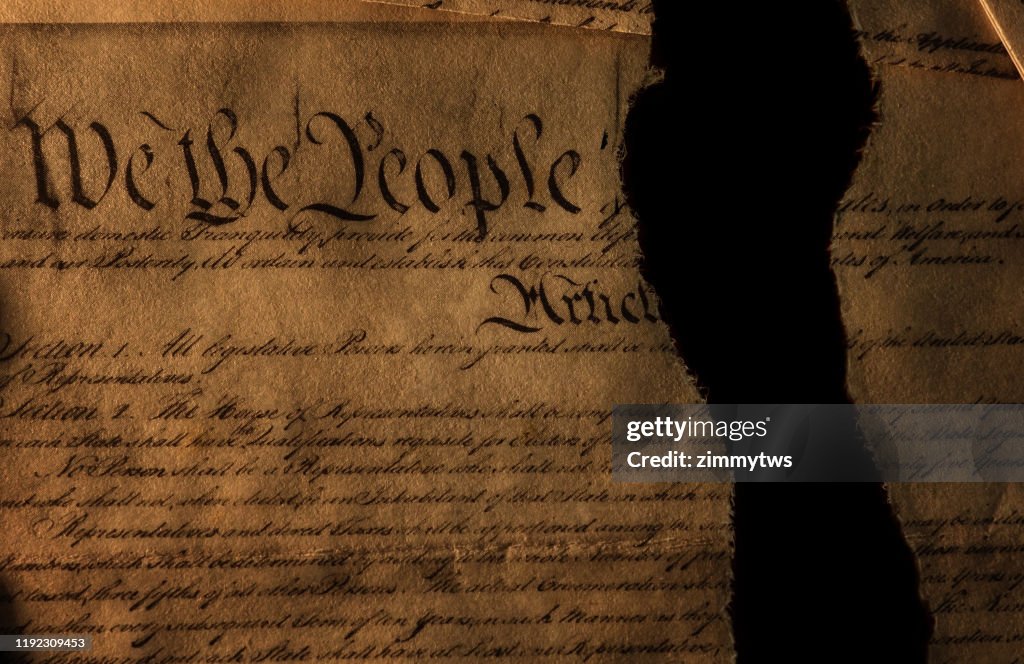 the Applicatio
We the People
insure domestic Tranquility, provide for the common def onal Welfare, and
and our Posterity, do ordain and establish this Constitution tes of America.
Articl
Section. 1. All legislative Powers herein granted shall be of the United State
of Representatives.
Section. 2. The House of Representatives shall be comp
in each State shall have the Qualifications requisite for Electors of
No Person shall be a Representative who shall not ty five Years
and who shall not, when elected, be an Inhabitant of that State in which
Representatives and direct Taxes shall be apportioned among the may be includ
Numbers, which shall be determined by adding to the whole Number of
not taxed, three fifths of all other Persons. The actual Enumeration
and within every subsequent Term of ten Years, in such Manner as they
each State shall have at Least one Representative
gettyimages®
Credit: zimmytws
1192309453